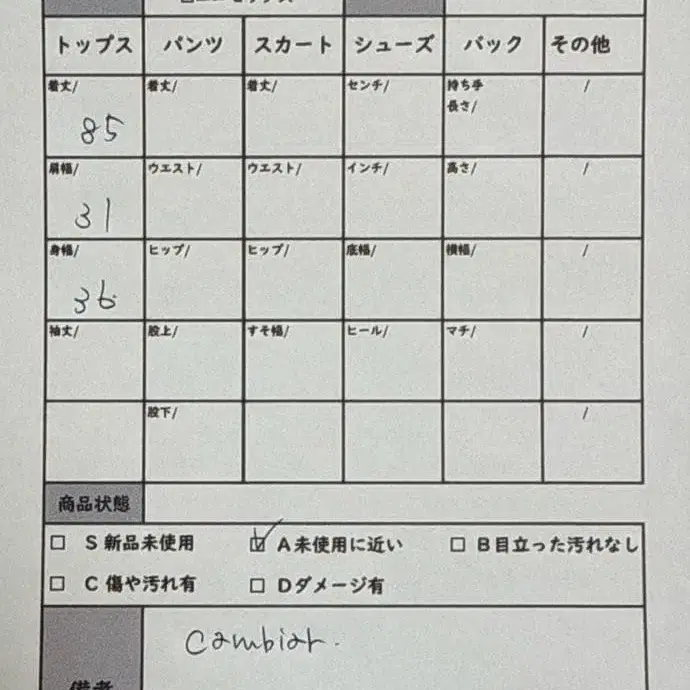 トップス パンツ スカート シューズ バック その他
着丈/ 着丈/ 着丈/ センチ/ 持ち手 /
長さ/
85
肩幅/ ウエスト/ ウエスト/ インチ/ 高さ/ /
31
身幅/ ヒップ/ ヒップ/ 底幅/ 横幅/ /
36
袖丈/ 股上/ すそ幅/ ヒール/ マチ/ /
股下/ /
商品状態
□ S 新品未使用 ☑ A未使用に近い □ B目立った汚れなし
□ C 傷や汚れ有 □ Dダメージ有
cambiar.
備考